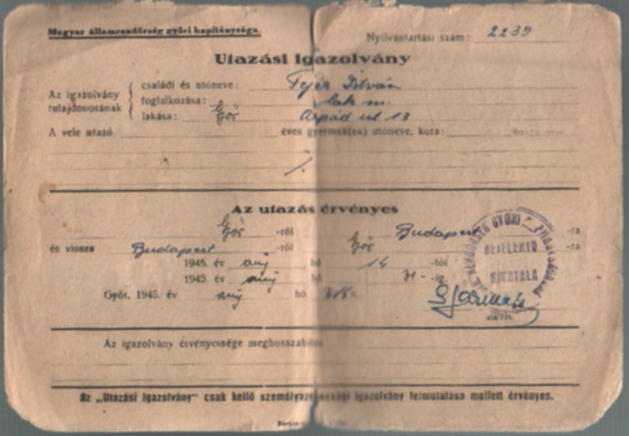 Magyar államrendőrség győri kapitánysága.
Nyilvántartási szám: 2239
Utazási igazolvány
Az igazolvány tulajdonosának
családi és utóneve: Fejér István
foglalkozása: lak. m.
lakása: Győr Árpád út 13
A vele utazó éves gyermek(ek) utóneve, kora:
Az utazás érvényes
Győr -ról Budapest -ra
és vissza Budapest -ról Győr -ra
1945. év aug hó 14 -től
1945. év aug hó 31 -ig.
Győr, 1945. év aug hó
GYŐRI
BEJELENTŐ
HIVATALA
aláírás.
Az igazolvány érvényessége meghosszabbítva
Az „Utazási igazolvány" csak kellő igazolvány felmutatása mellett érvényes.